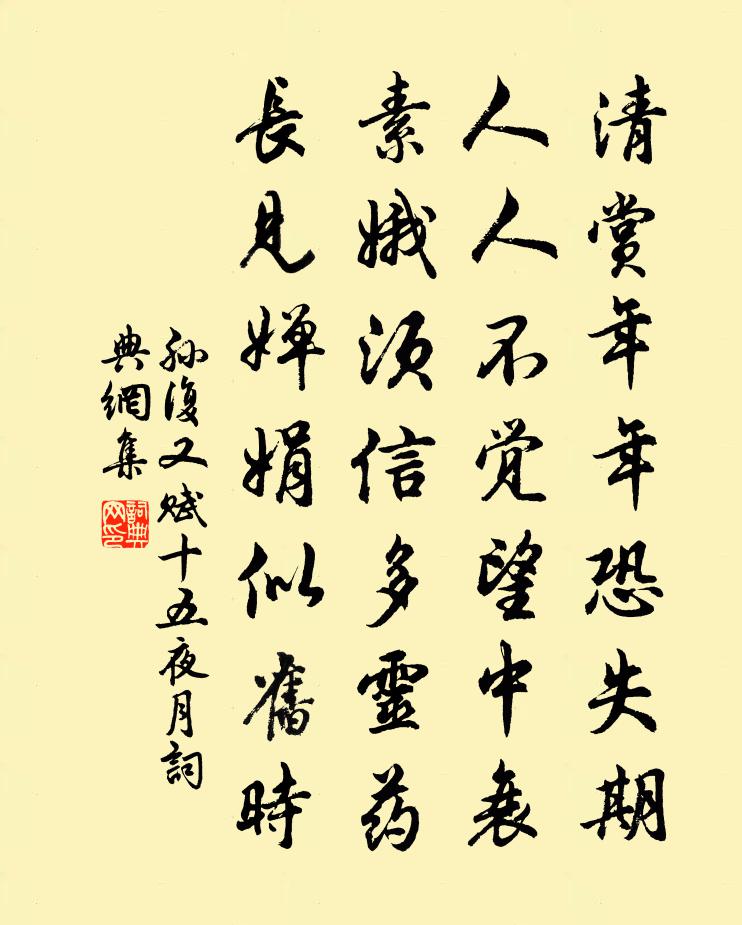 清賞年年恐失期
人人不覚望中衰
素娥須信多靈药
長見嬋娟似舊時
孫復又賦十五夜月詞
典網集
詞典網印